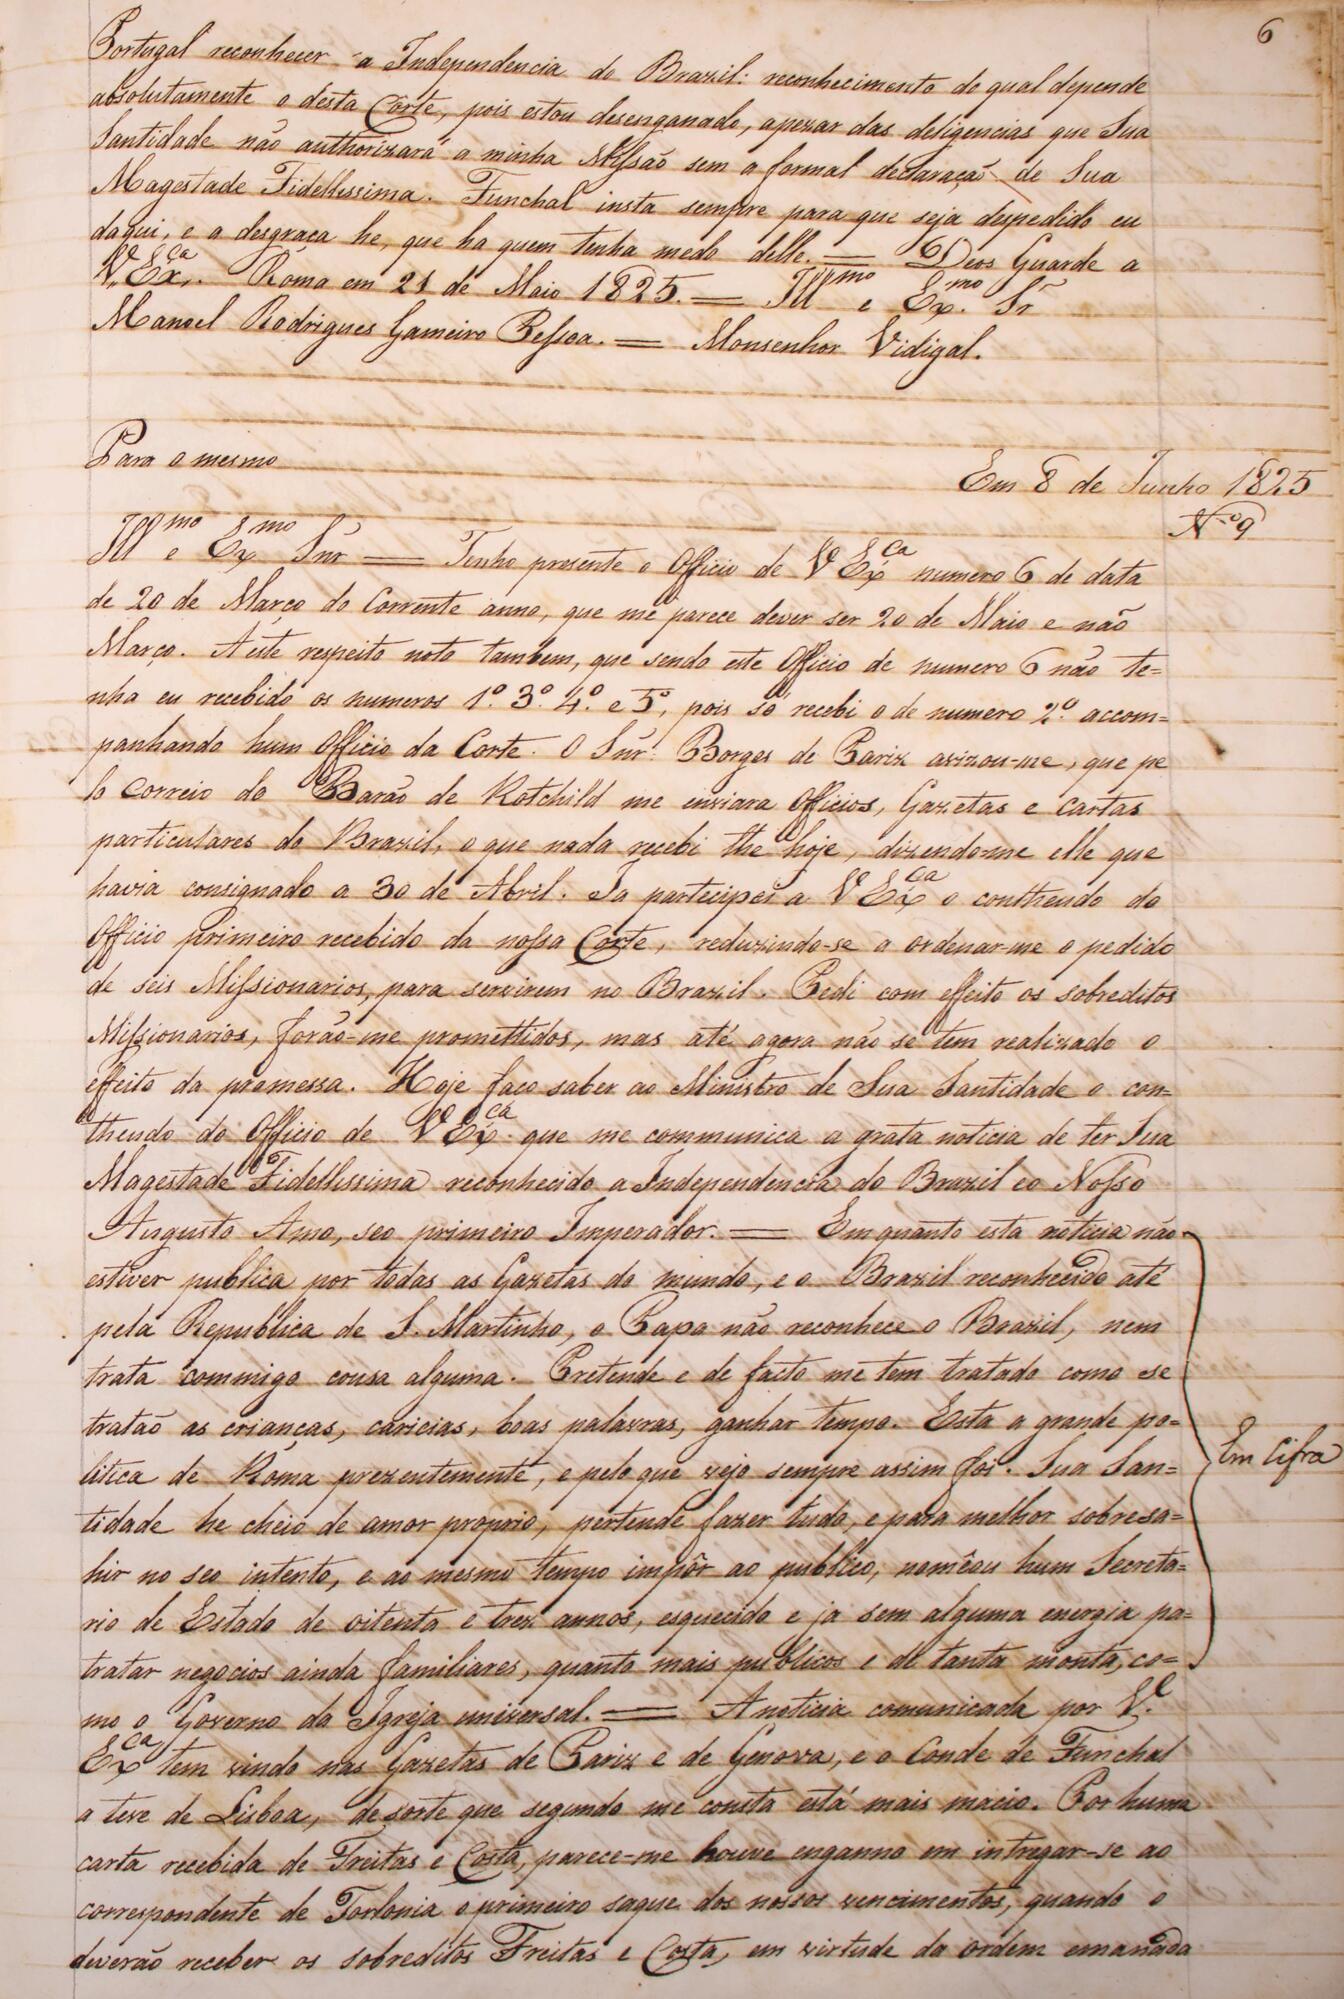 6
Portugal reconhecer a Independencia do Brazil: reconhecimento do qual depende
absolutamente o desta Côrte, pois estou desenganado, apezar das deligencias que Sua
Santidade não authorizará a minha Missão sem a formal declaração de Sua
Magestade Fidellissima. Funchal insta sempre para que seja despedido eu
daqui, e a desgraça he, que ha quem tenha medo delle. = Deos Guarde a
V. Exca. Roma em 21 de Maio 1825. = Illmo e Exmo. Sr
Manoel Rodrigues Gameiro Pessoa. = Monsenhor Vidigal.
Para o mesmo
Em 8 de Junho 1825
No 9
Illmo e Exmo Snr = Tenho presente o Officio de V Exca numero 6 de data
de 20 de Março do Corrente anno, que me parece dever ser 20 de Maio e não
Março. A este respeito noto tambem, que sendo este Officio de numero 6 não te=
nha eu recebido os numeros 1º. 3º. 4º. e 5º, pois só recebi o de numero 2º. accom=
panhando hum Officio da Corte. O Snr. Borges de Pariz avizou-me, que pe
lo Correio do Barão de Rotchild me enviara Officios, Gazetas e cartas
particulares do Brazil, o que nada recebi the hoje, dizendo-me elle que
havia consignado a 30 de Abril. Ja partecipei a V Exca o contheudo do
Officio primeiro recebido da nossa Corte, reduzindo-se a ordenar-me o pedido
de seis Missionarios, para servirem no Brazil. Pedi com effeito os sobreditos
Missionarios, forão-me promettidos, mas até agora não se tem realizado o
effeito da promessa. Hoje faço saber ao Ministro de Sua Santidade o con=
theudo do Officio de V Exca. que me communica a grata noticia de ter Sua
Magestade Fidellissima reconhecido a Independencia do Brazil e o Nosso
Augusto Amo, seo primeiro Imperador. = Em quanto esta noticia não
estiver publica por todas as Gazetas do mundo, e o Brazil reconhecido até
pela Republica de S. Martinho, o Papa não reconhece o Brazil, nem
trata commigo cousa alguma. Pretende e de facto me tem tratado como se
tratão as crianças, caricias, boas palavras, ganhar tempo. Esta a grande po=
litica de Roma prezentemente, e pelo que vejo sempre assim foi. Sua San=
Em Cifra
tidade he cheio de amor proprio, pertende fazer tudo, e para melhor sobresa=
hir no seo intento, e ao mesmo tempo impôr ao publico, nomêou hum Secreta=
rio de Estado de oitenta e trez annos, esquecido e ja sem alguma energia pa=
tratar negocios ainda familiares, quanto mais publicos e de tanta monta, co=
mo o Governo da Igreja universal. = A noticia comunicada por V.
Exca tem vindo nas Gazetas de Pariz e de Genova, e o Conde de Funchal
a teve de Lisboa, de sorte que segundo me consta está mais macio. Por huma
carta recebida de Freitas e Costa, parece-me houve enganno em intregar-se ao
correspondente de Torlonia o primeiro saque dos nossos vencimentos, quando o
deverão receber os sobreditos Freitas e Costa, em virtude da ordem emanada